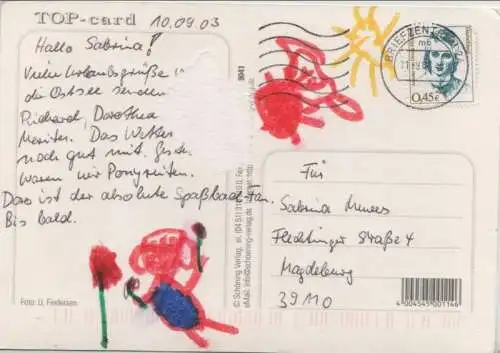 TOP-card 10.09.03
Hallo Sabrina!
Viele Urlaubsgrüße
die Ostsee senden
Richard, Dorothea
Das Wetter
noch gut mit.
waren wir Ponyreiten.
Doro ist der absolute Spaßbad-Fan.
Bis bald.
Foto: U. Fierdersen
© Schöning Verlag,
eMail: info@schoening-verlag.de
BRIEFZENTRUM
mb
0,45€
Für
Sabrina
Flechtinger Straße 4
Magdeburg
39110
4 004545 001146